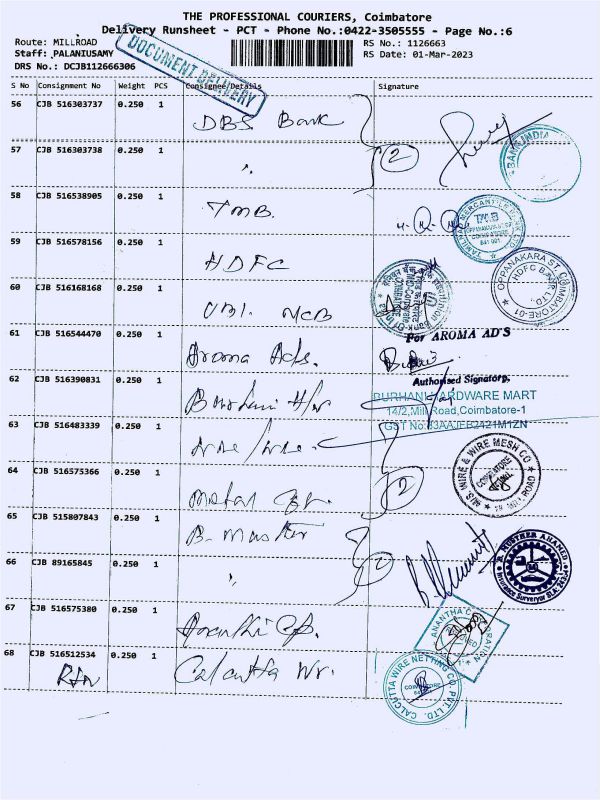 THE PROFESSIONAL COURIERS, Coimbatore
Delivery Runsheet - PCT - Phone No.:0422-3505555 - Page No.:6
Route: MILLROAD
RS No.: 1126663
Staff: PALANIUSAMY
RS Date: 01-Mar-2023
DRS No.: DCJB112666306
DOCUMENT DELIVERY
S No Consignment No Weight PCS Consignee/Details Signature
56 CJB 516303737 0.250 1 DBS Bank
57 CJB 516303738 0.250 1 " 2
BANK INDIA
58 CJB 516538905 0.250 1 TMB
TAMILNAD MERCANTILE BANK LTD.
T.M.B
OPPANAKARA ST
COIMBATORE
641 001
59 CJB 516578156 0.250 1 HDFC
OPPANAKARA ST. COIMBATORE-01
HDFC BANK LTD.
60 CJB 516168168 0.250 1 UBI. MCB
61 CJB 516544470 0.250 1 Aroma Ads.
For AROMA AD'S
Authorised Signatory,
62 CJB 516390831 0.250 1 Burhani H/w
BURHANI HARDWARE MART
14/2, Mill Road, Coimbatore-1
GST No:33AAJFB2421M1ZN
63 CJB 516483339 0.250 1
64 CJB 516575366 0.250 1 Metal 2
M/S. WIRE & WIRE MESH CO
COIMBATORE
MILL ROAD
65 CJB 515807843 0.250 1 B. Master
66 CJB 89165845 0.250 1 " 2
Insurance Surveyor
67 CJB 516575380 0.250 1
ANANTHA CORPORATION
68 CJB 516512534 0.250 1 Calcutta Wr.
CALCUTTA WIRE NETTING CO. PVT. LTD.
COIMBATORE